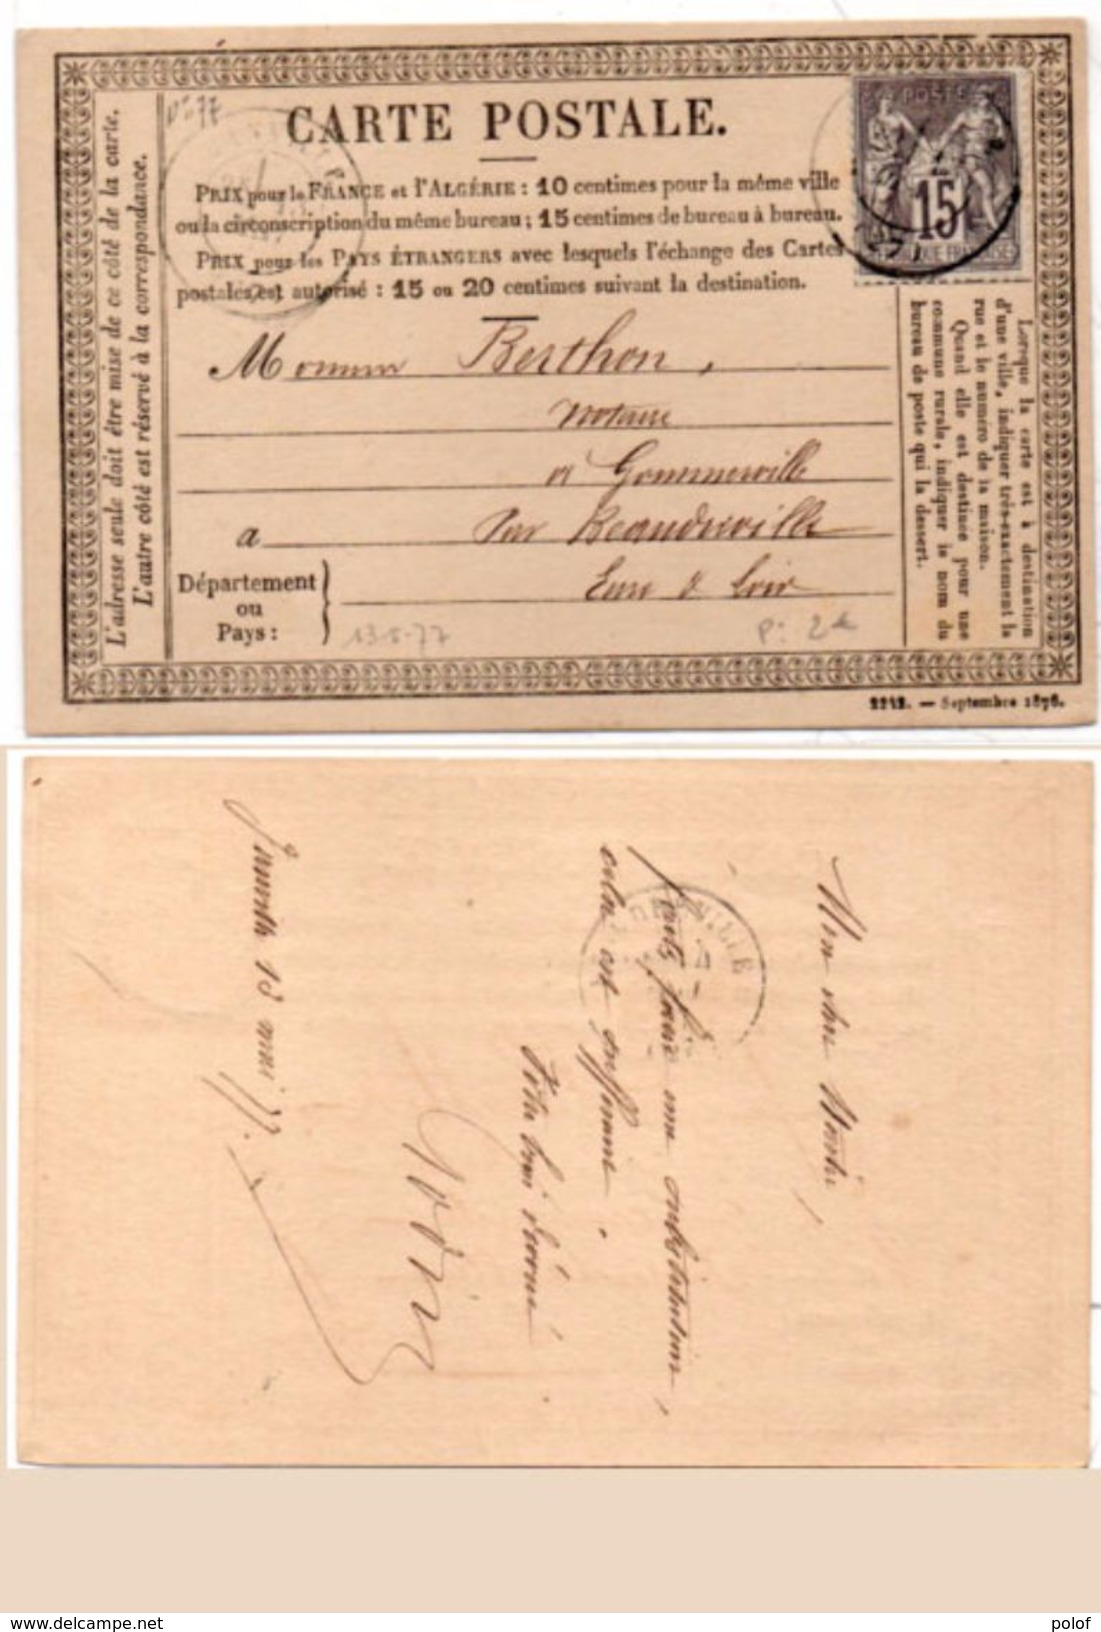 CARTE POSTALE.
PRIX pour la FRANCE et l'ALGÉRIE : 10 centimes pour la même ville
ou la circonscription du même bureau ; 15 centimes de bureau à bureau.
PRIX pour les PAYS ÉTRANGERS avec lesquels l'échange des Cartes
postales est autorisé : 15 ou 20 centimes suivant la destination.
L'adresse seule doit être mise de ce côté de la carte.
L'autre côté est réservé à la correspondance.
POSTE
15
Berthon,
Notaire
à Gommerville
a Par
Eure & Loir
Département
ou
Pays :
13-5-77
Lorsque la carte est à destination
d'une ville, indiquer très-exactement la
rue et le numéro de la maison.
Quand elle est destinée pour une
commune rurale, indiquer le nom du
bureau de poste qui la dessert.
2242. — Septembre 1876.
Mon cher
faire une substitution,
cela est
Votre bien dévoué
13 mai 77.
www.delcampe.net
polof